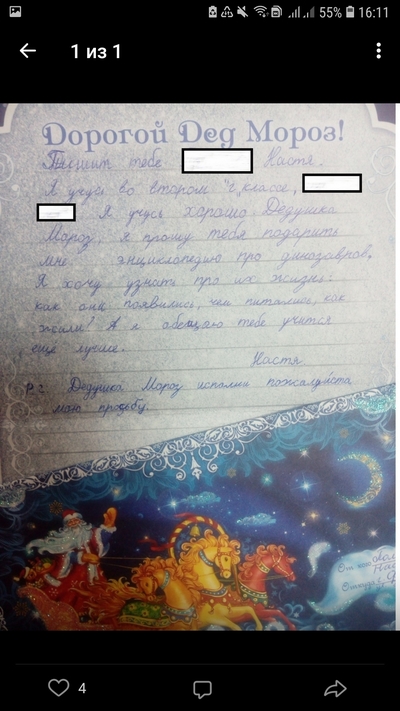 55% 16:11
1 из 1
Дорогой Дед Мороз!
Пишит тебе Настя.
Я учусь во втором "г" классе,
Я учусь хорошо Дедушка
Мороз, я прошу тебя подарить
мне энциклопедию про динозавров.
Я хочу узнать про их жизнь:
как они появились, чем питались, как
жили? А я обещаю тебе учится
еще лучше.
Настя
P.S Дедушка Мороз исполни пожалуйста
мою прозьбу.
От кого
Откуда
4